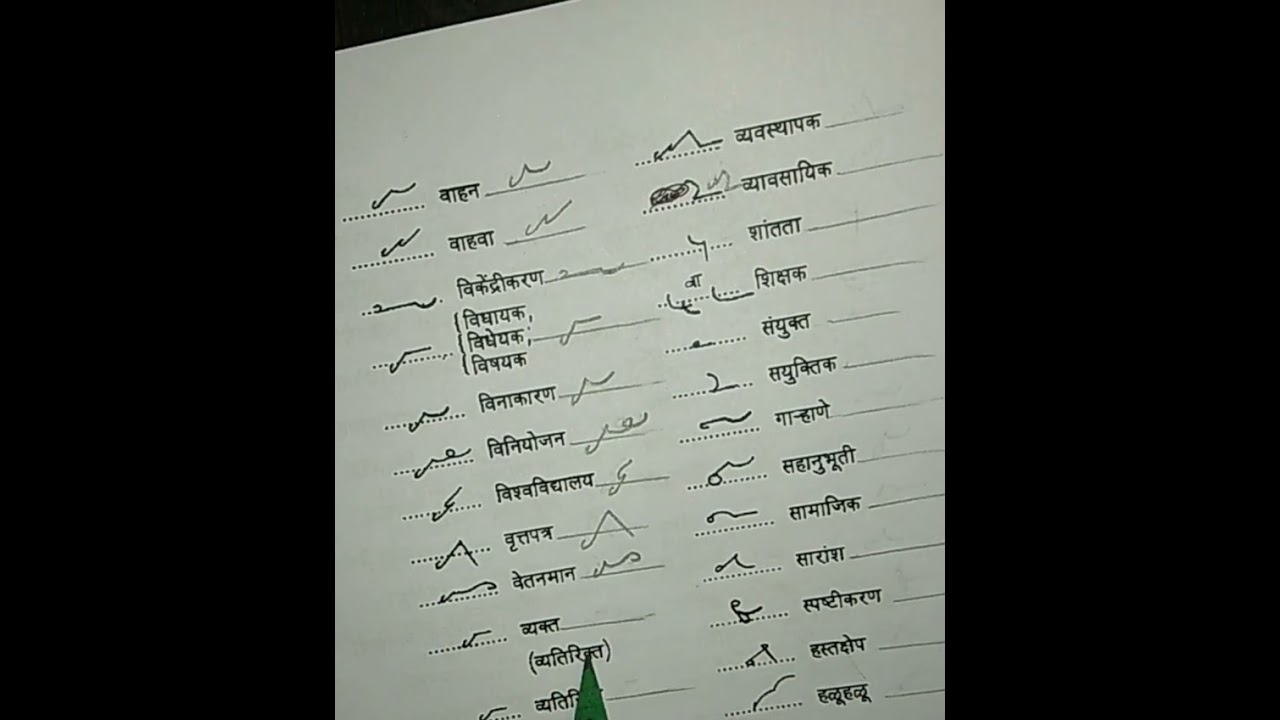 वाहन
वाहवा
विकेंद्रीकरण
विधायक,
विधेयक,
विषयक
विनाकारण
विनियोजन
विश्वविद्यालय
वृत्तपत्र
वेतनमान
व्यक्त
(व्यतिरिक्त)
व्यवस्थापक
व्यावसायिक
शांतता
वा शिक्षक
संयुक्त
सयुक्तिक
गाऱ्हाणे
सहानुभूती
सामाजिक
सारांश
स्पष्टीकरण
हस्तक्षेप
हळूहळू